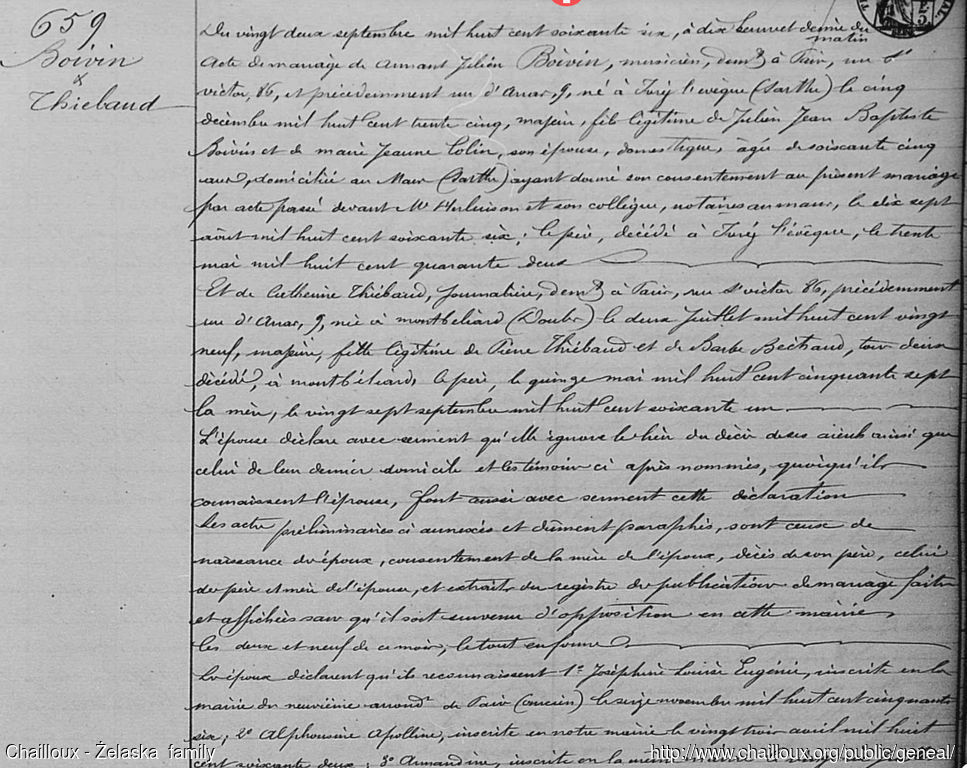 659
Boivin
&
Thiebaud
Du vingt deux septembre mil huit cent soixante six, à dix heures et demie du
matin
Acte de mariage de Armant Julien Boivin, musicien, demt à Paris, rue St
victor, 86, et précédemment rue d'Arras, 9, né à Juré l'evèque (Sarthe) le cinq
décembre mil huit cent trente cinq, majeur, fils légitime de Julien Jean Baptiste
Boivin et de marie Jeanne Colin, son épouse, domestique, agée de soixante cinq
ans, domiciliée au Mans (Sarthe) ayant donné son consentement au présent mariage
par acte passé devant Me et son collègue, notaires au mans, le dix sept
août mil huit cent soixante six; le père, décédé à Juré l'évêque, le trente
mai mil huit cent quarante deux
Et de Catherine Thiébaud, journalière, demt à Paris, rue St victor 86, précédemment
rue d'Arras, 9, née à montbeliard (Doubs) le deux Juillet mil huit cent vingt
neuf, majeure, fille légitime de Pierre Thiébaud et de Barbe Bechaud, tous deux
décédés, à montbéliard, le père, le quinze mai mil huit cent cinquante sept
la mère, le vingt sept septembre mil huit cent soixante un
L'épouse déclare avec serment qu'elle ignore le lieu du décès de ses aïeuls ainsi que
celui de leur dernier domicile et les témoins ci après nommés, quoiqu'ils
connaissent l'épouse, font aussi avec serment cette déclaration
Les actes préliminaires ci annexés et dûment paraphés, sont ceux de
naissance des époux, consentement de la mère de l'époux, décès de son père, celui
des père et mère de l'épouse, et extraits du registre des publications de mariage faites
et affichées sans qu'il soit survenu d'opposition en cette mairie
les deux et neuf de ce mois, le tout en forme
Les époux déclarent qu'ils reconnaissent 1º Joséphine Louise Eugénie, inscrite en la
mairie du neuvième arrondt de Paris (ancien) le seize novembre mil huit cent cinquante
six; 2º Alphonsine Apolline, inscrite en notre mairie le vingt trois avril mil huit
cent soixante deux; 3º Armandine, inscrite en la même
Chailloux - Żelaska family
http://www.chailloux.org/public/geneal/